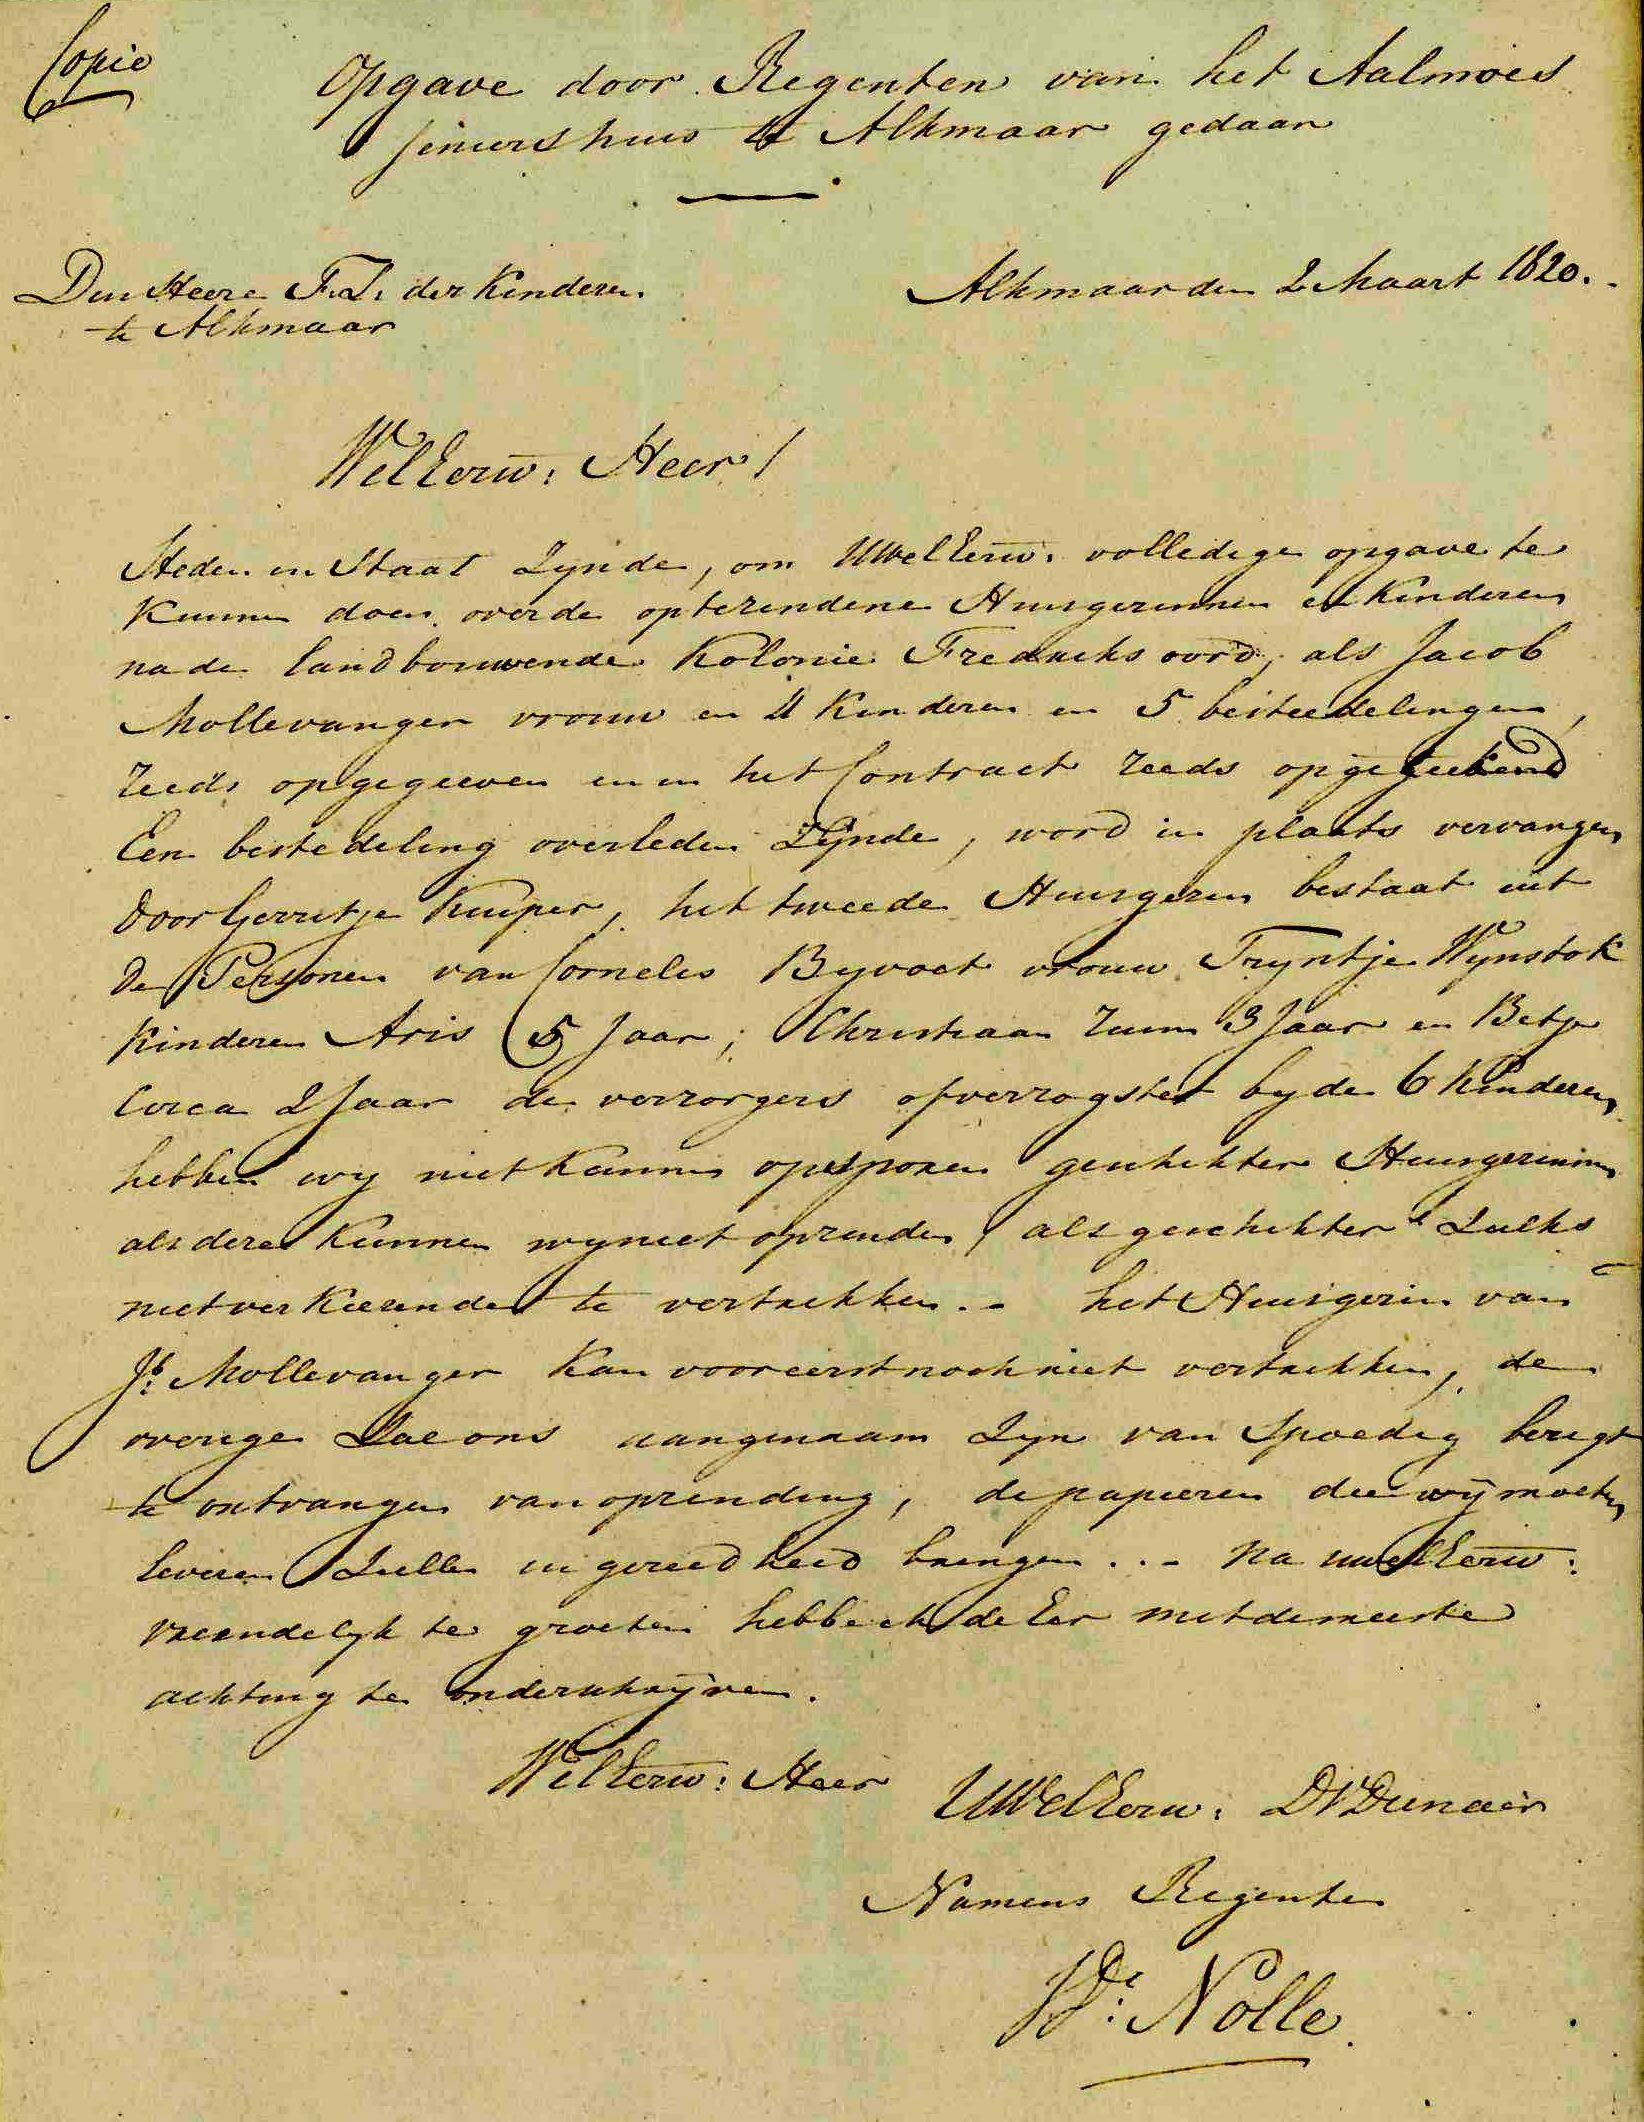 Copie
Opgave door Regenten van het Aalmoes
seniershuis te Alkmaar gedaan
Den Heere F.L. der Kinderen
te Alkmaar
Alkmaar den 2 Maart 1820.
WelEerw: Heer!
Heden in Staat Zynde, om UwelEerw: volledige opgave te
kunnen doen over de optezendene Huisgezinnen en Kinderen
na de landbouwende Kolonie Fredriks oord, als Jacob
Mollevanger vrouw en 4 Kinderen en 5 besteedelingen,
reeds opgegeeven en in het Contract reeds opgeteekend
Een bestedeling overleden Zynde, word in plaats vervangen
door Gerritje Kuiper, het tweede Huisgezin bestaat uit
de Personen van Cornelis Byvoet vrouw Tryntje Wynstok
Kinderen Aris 5 Jaar, Christiaan ruim 3 Jaar en Betje
Circa 2 Jaar de verzorgers of verzogster by de 6 Kinderen
hebben wy niet kunnen opsporen geschikter Huisgezinnen
als deze kunnen wy niet opzenden, als geschikter Zulks
niet verkiezende te vertrekken.- het Huisgezin van
Jb: Mollevanger kan vooreerst noch niet vertrekken, de
overige Zal ons aangenaam Zyn van Spoedig berigt
te ontvangen van opzending, de papieren die wij moeten
leveren Zullen in gereedheid brengen..- Na uwelEerw:
vriendelyk te groeten heb ik de Eer met de meeste
achting te onderschrijven.
WelEerw: Heer
UWelEerw: DW Dienaar
Namens Regenten
Nolle